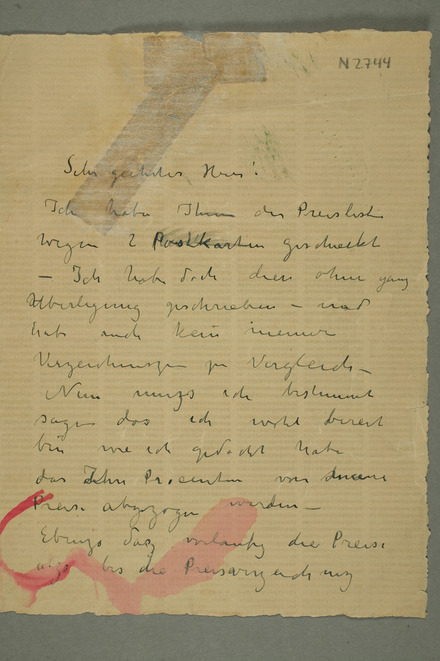 N 2744
Sehr geehrter Herr!
Ich habe Ihnen die Preisliste
wegen 2 Postkarten geschickt
– Ich habe doch dies ohne ganz
Überlegung geschrieben – und
habe auch kein meiner
Verzeichnungen zu Vergleich –
Nun muss ich bestimmt
sagen das ich wohl bereit
bin wie ich gedacht habe
das Zehn Procenten von
Preise abgezogen werden –
das vorläufig die Preise
bis die Preisverzeichnung